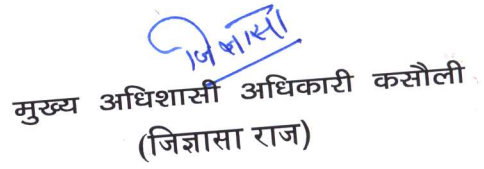 जिज्ञासा
मुख्य अधिशासी अधिकारी कसौली
(जिज्ञासा राज)